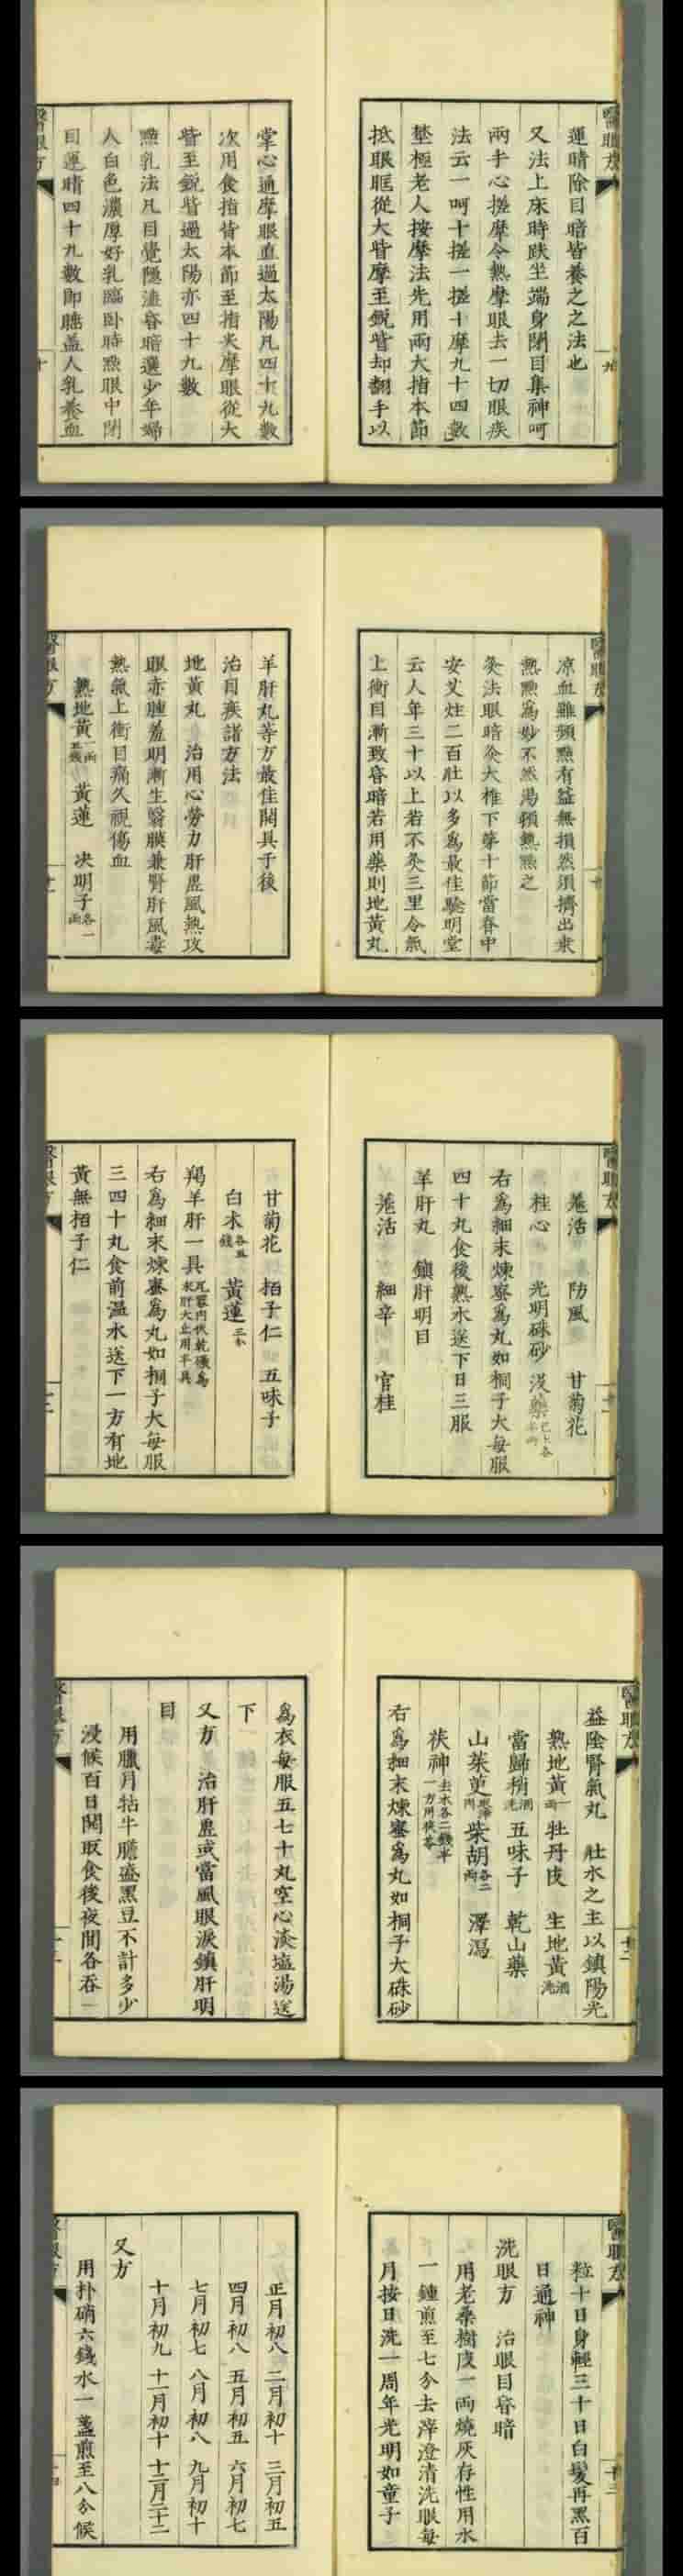 醫眼方
九
運睛除目暗皆養之之法也
又法上床時趺坐端身閉目集神呵
兩手心搓摩令熱摩眼去一切眼疾
法云一呵十搓一搓十摩九十四數
埜極老人按摩法先用兩大指本節
抵眼眶從大眥摩至銳眥却翻手以
掌心通摩眼直過太陽凡四十九數
次用食指背本節至指尖摩眼從大
眥至銳眥過太陽亦四十九數
點乳法凡目覺隱澁昏暗選少年婦
人白色濃厚好乳臨卧時點眼中閉
目運睛四十九數即睡盖人乳養血
醫眼方
十
醫眼方
十
凉血雖頻點有益無損然須擠出乘
熱點爲妙不然湯頓熱點之
灸法眼暗灸大椎下第十節當脊中
安艾炷二百壯以多爲最佳驗明堂
云人年三十以上若不灸三里令氣
上衝目漸致昏暗若用藥則地黃丸
羊肝丸等方最佳開具于後
治目疾諸方法
地黃丸 治用心勞力肝虛風熱攻
眼赤腫羞明漸生翳膜兼腎肝風毒
熱氣上衝目痛久視傷血
熟地黃一兩五錢 黃蓮 决明子各一兩
醫眼方
十一
醫眼方
十一
羗活 防風 甘菊花
桂心 光明硃砂 沒藥已上各半兩
右爲細末煉蜜爲丸如桐子大每服
四十丸食後熱水送下日三服
羊肝丸 鎮肝明目
羗活 細辛 官桂
甘菊花 栢子仁 五味子
白术各五錢 黃蓮三分
羯羊肝一具
右爲細末煉蜜爲丸如桐子大每服
三四十丸食前温水送下一方有地
黃無栢子仁
醫眼方
十二
醫眼方
十二
益陰腎氣丸 壯水之主以鎮陽光
熟地黃一兩 牡丹皮 生地黃酒洗
當歸梢酒洗 五味子 乾山藥
山茱萸 柴胡各二兩 澤瀉
茯神去木各二錢半一方用茯苓
右爲細末煉蜜爲丸如桐子大硃砂
爲衣每服五七十丸空心淡塩湯送
下
又方 治肝虛或當風眼淚鎮肝明
目
用臘月牯牛膽盛黑豆不計多少
浸候百日開取食後夜間各吞一
醫眼方
十三
醫眼方
十三
粒十日身輕三十日白髮再黑百
日通神
洗眼方 治眼目昏暗
用老桑樹皮一兩燒灰存性用水
一鍾煎至七分去滓澄清洗眼每
月按日洗一周年光明如童子
正月初八 二月初十 三月初五
四月初八 五月初五 六月初七
七月初七 八月初八 九月初十
十月初九 十一月初十 十二月二十二
又方
用朴硝六錢水一盞煎至八分候
醫眼方
十四